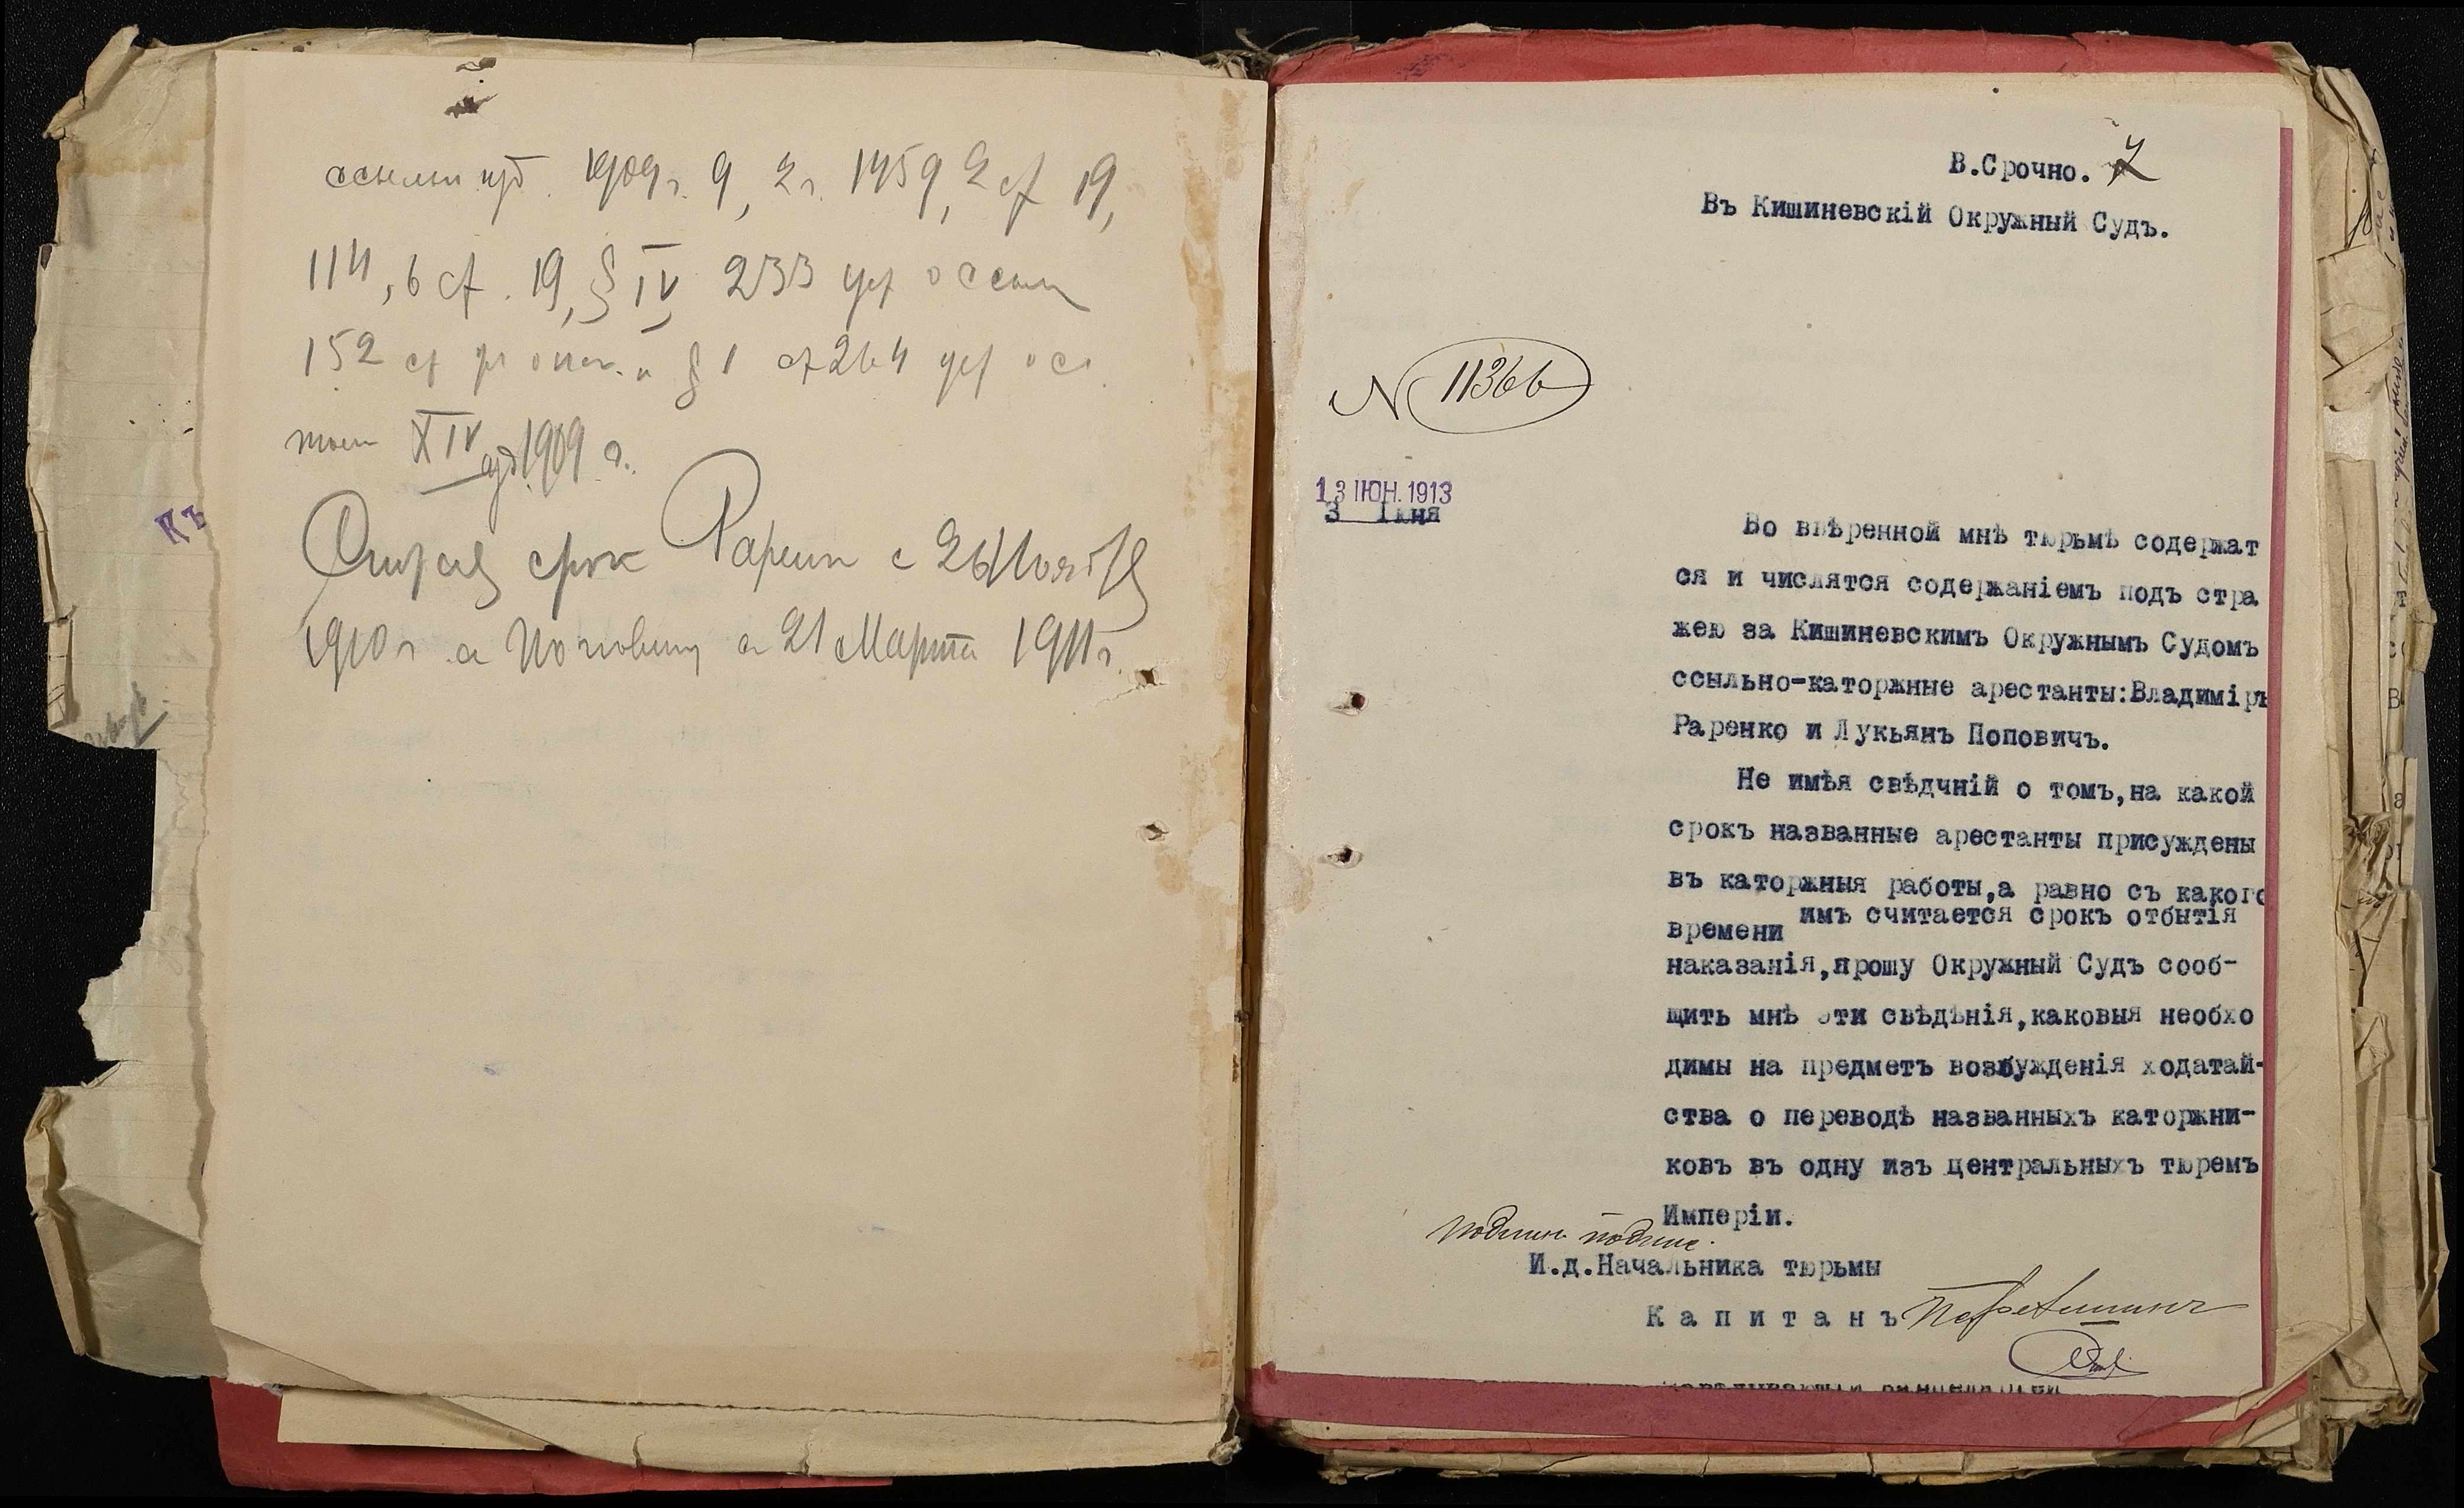 1909 г. 9, 2 г. 1459, 2 ст 19,
114, 6 ст. 19, § IV 233 уст о ссыл
152 ст и § 1 ст 264 уст о сс.
XIV 1909 г.
срок Рарен с 26 Ноября
1910 г а Поповичу с 21 Марта 1911 г.
къ
В.Срочно. 7
Въ Кишиневскій Окружный Судъ.
N 11366
13 ІЮН. 1913
3 Іюня
Во ввѣренной мнѣ тюрьмѣ содержат
ся и числятся содержаніемъ подъ стра
жею за Кишиневскимъ Окружнымъ Судомъ
ссыльно-каторжные арестанты:Владиміръ
Раренко и Лукьянъ Поповичъ.
Не имѣя свѣдчній о томъ,на какой
срокъ названные арестанты присуждены
въ каторжныя работы,а равно съ какого
времени имъ считается срокъ отбытія
наказанія,прошу Окружный Судъ сооб-
щить мнѣ эти свѣдѣнія,каковыя необхо
димы на предметъ возбужденія ходатай-
ства о переводѣ названныхъ каторжни-
ковъ въ одну изъ центральныхъ тюремъ
Имперіи.
подлин. подпис.
И.д.Начальника тюрьмы
Капитанъ